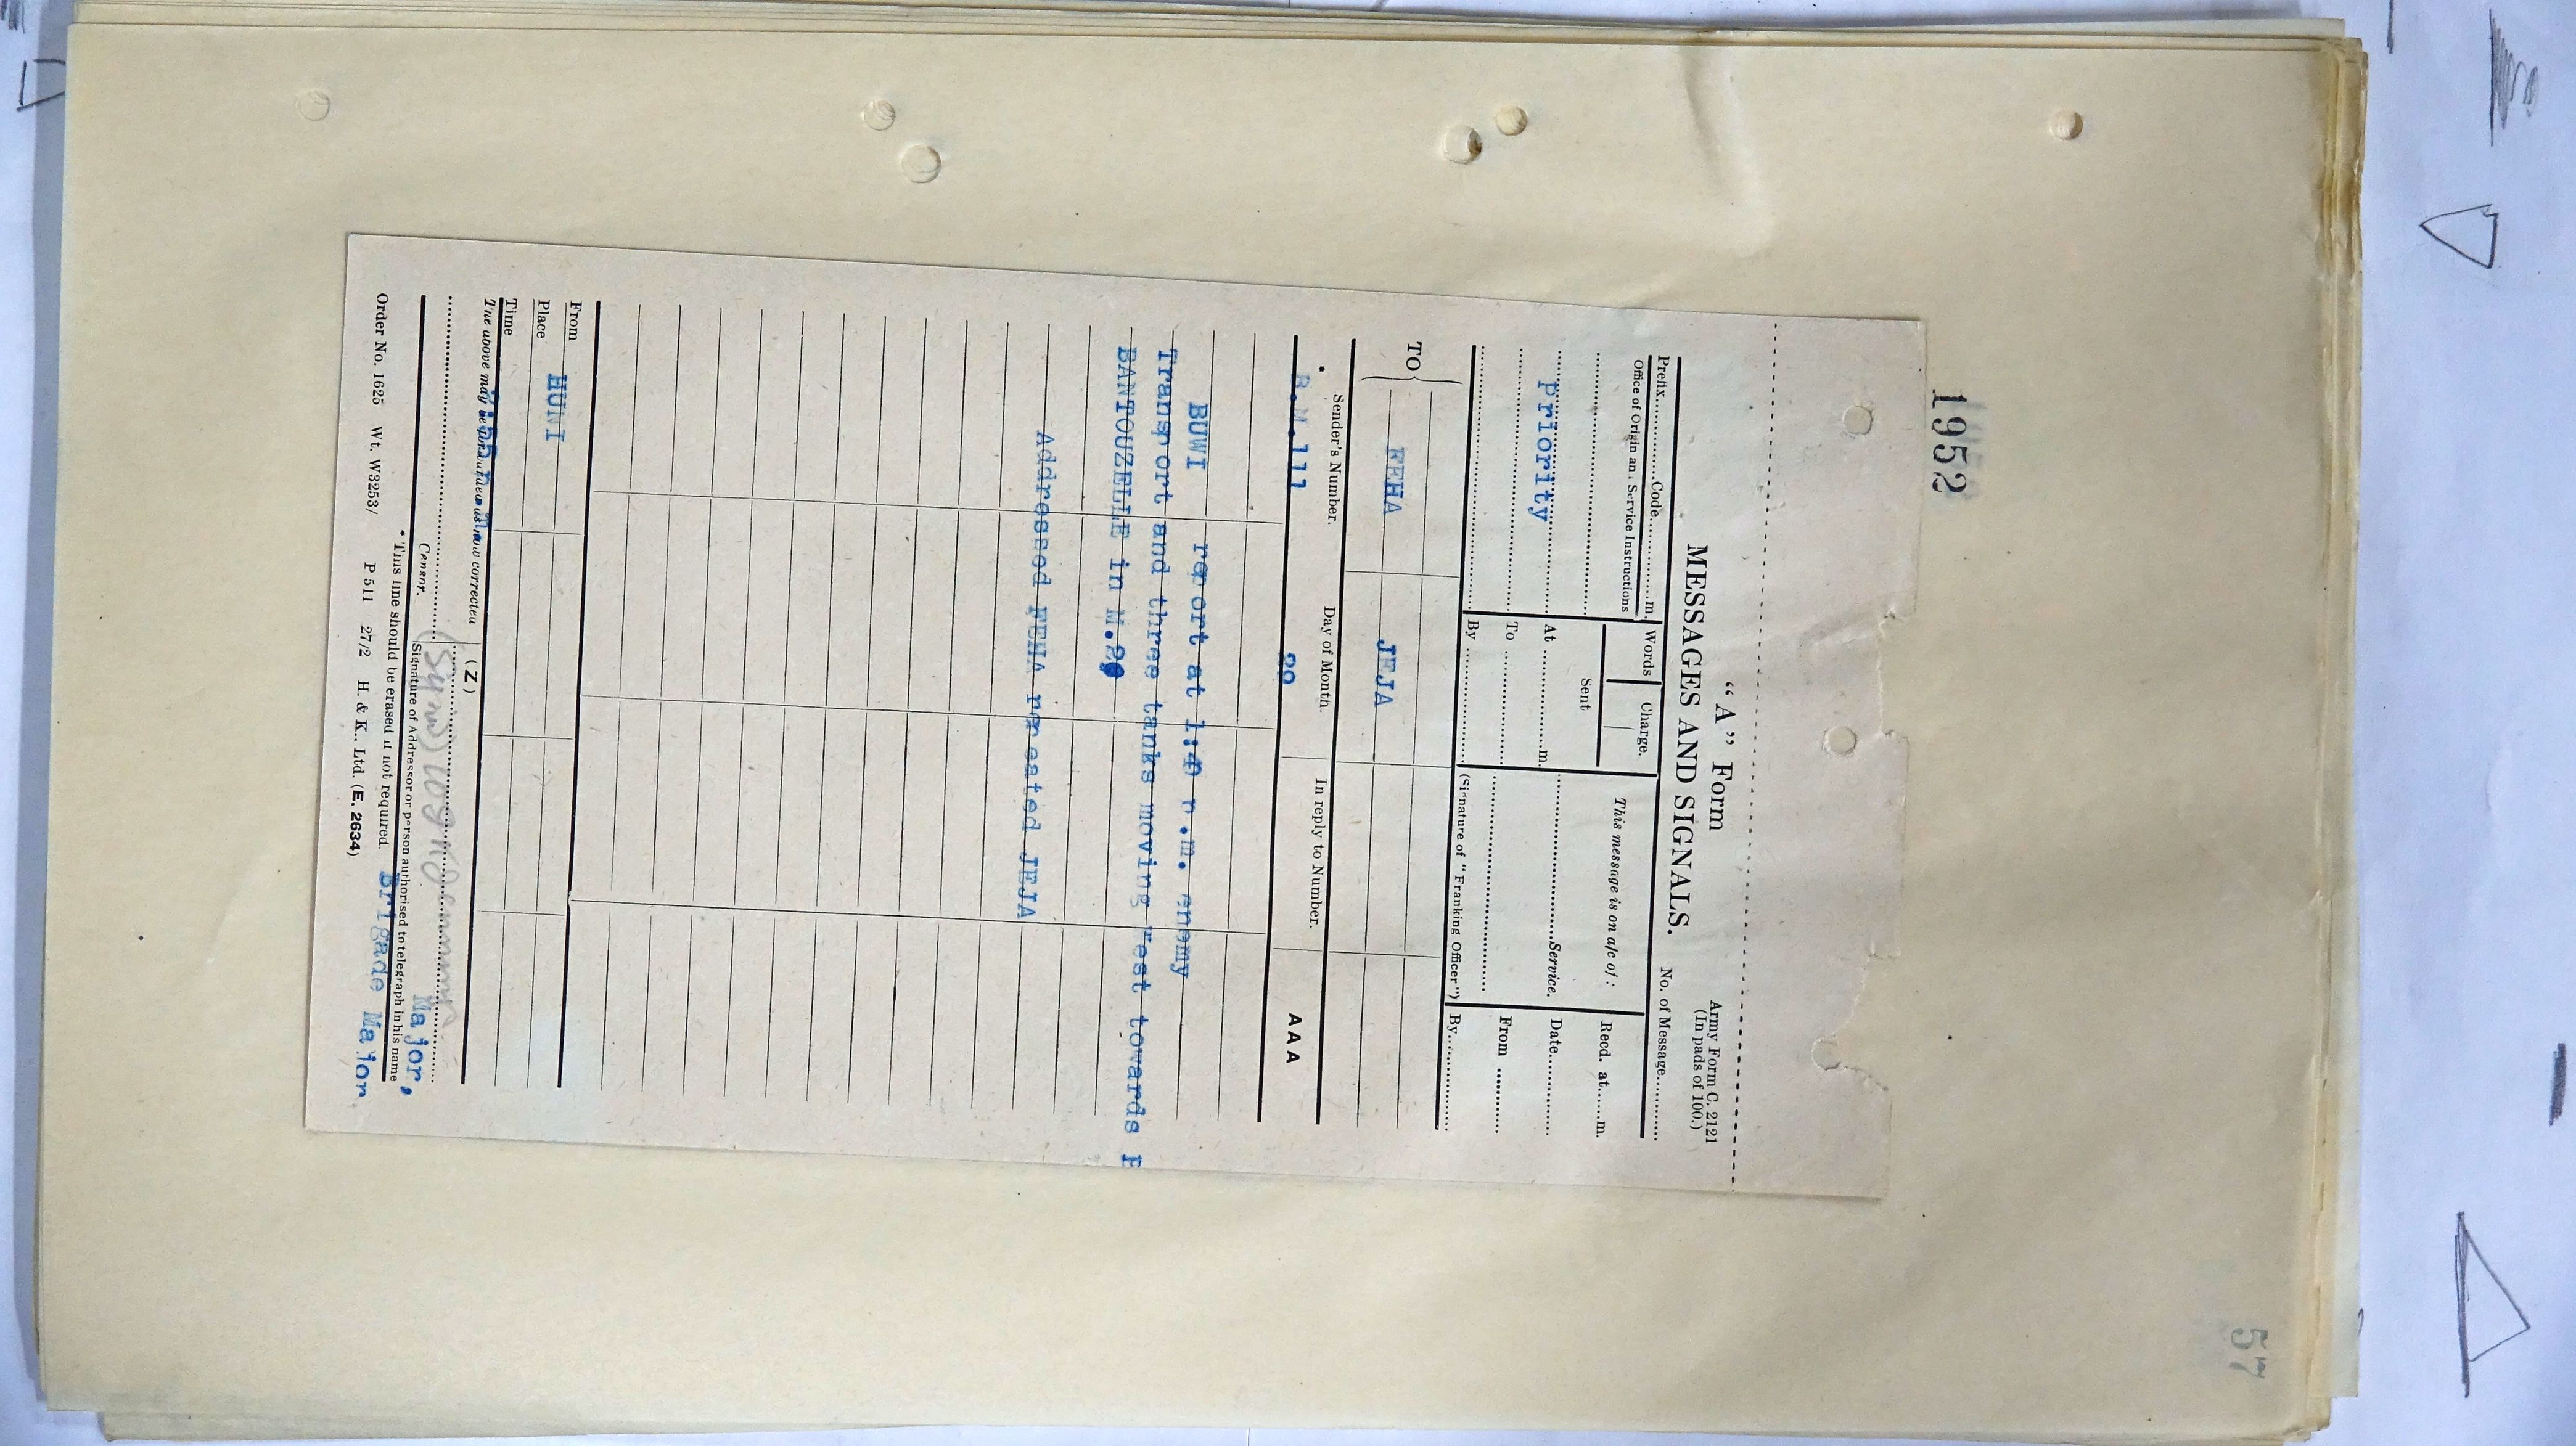 1952
57
"A" Form
MESSAGES AND SIGNALS.
Army Form C. 2121
(In pads of 100.)
No. of Message............
Prefix............Code............m.
Office of Origin and Service Instructions
Priority
Words
Charge.
Sent
At ............m.
To ............
By ............
This message is on a/c of :
............Service.
(Signature of "Franking Officer")
Recd. at......m.
Date............
From ............
By............
TO
FEHA JEJA
* Sender's Number.
Day of Month.
In reply to Number.
AAA
B.M.111 20
BUWI report at enemy
Transport and three tanks moving West towards
BANTOUZELLE in
Addressed FEHA repeated JEJA
From
HUWI
Place
Time
The above may be forwarded as now corrected
(Z)
Censor.
Signature of Addressor or person authorised to telegraph in his name
Major,
* This line should be erased if not required.
Brigade Major
Order No. 1625 Wt. W3253/ P 511 27/2 H. & K., Ltd. (E. 2634)